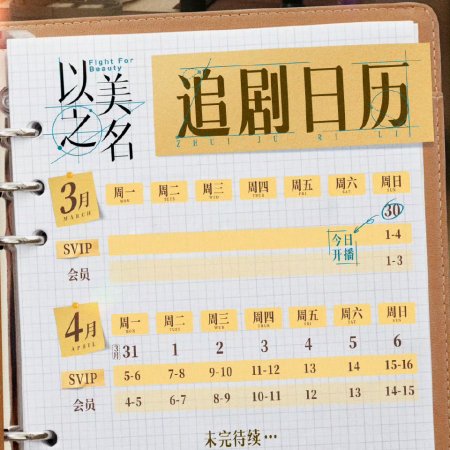 以美之名
Fight For Beauty
追剧日历
ZHUI JU RI LI
3月 周一 周二 周三 周四 周五 周六 周日
MARCH MON TUES WED THUR FRI SAT SUN
30
今日开播
SVIP 1-4
会员 1-3
4月 周一 周二 周三 周四 周五 周六 周日
APRIL MON TUES WED THUR FRI SAT SUN
3月31 1 2 3 4 5 6
SVIP 5-6 7-8 9-10 11-12 13 14 15-16
会员 4-5 6-7 8-9 10-11 12 13 14-15
未完待续…